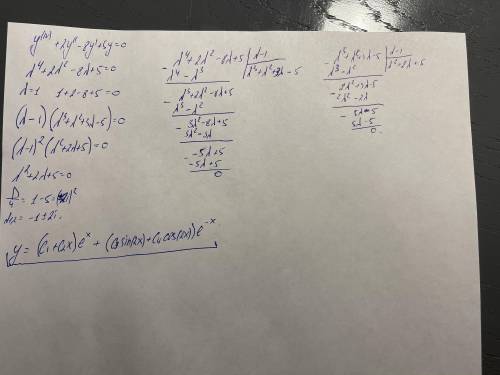 y⁽ᴵⱽ⁾ + 2y'' - 8y' + 5y = 0
λ⁴ + 2λ² - 8λ + 5 = 0
λ = 1   1 + 2 - 8 + 5 = 0
(λ - 1)(λ³ + λ² + 3λ - 5) = 0
(λ - 1)² (λ² + 2λ + 5) = 0
λ² + 2λ + 5 = 0
D/4 = 1 - 5 = (2i)²
λ₁,₂ = -1 ± 2i
y = (C₁ + C₂x)eˣ + (C₃ sin(2x) + C₄ cos(2x))e⁻ˣ
- λ⁴ + 2λ² - 8λ + 5 | λ - 1
λ⁴ - λ³ | λ³ + λ² + 3λ - 5
- λ³ + 2λ² - 8λ + 5
λ³ - λ²
- 3λ² - 8λ + 5
3λ² - 3λ
- -5λ + 5
-5λ + 5
0
- λ³ + λ² + 3λ - 5 | λ - 1
λ³ - λ² | λ² + 2λ + 5
- 2λ² + 3λ - 5
2λ² - 2λ
- 5λ - 5
5λ - 5
0